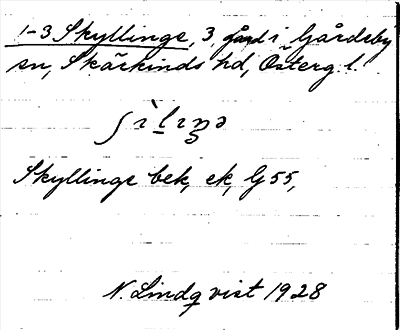 1-3 Skyllinge, 3 gård i Gårdeby
sn, Skärkinds hd, Österg. l.
ʃɪ̀lɪŋə
Skyllinge bek, ek, G 55,
N. Lindqvist 1928